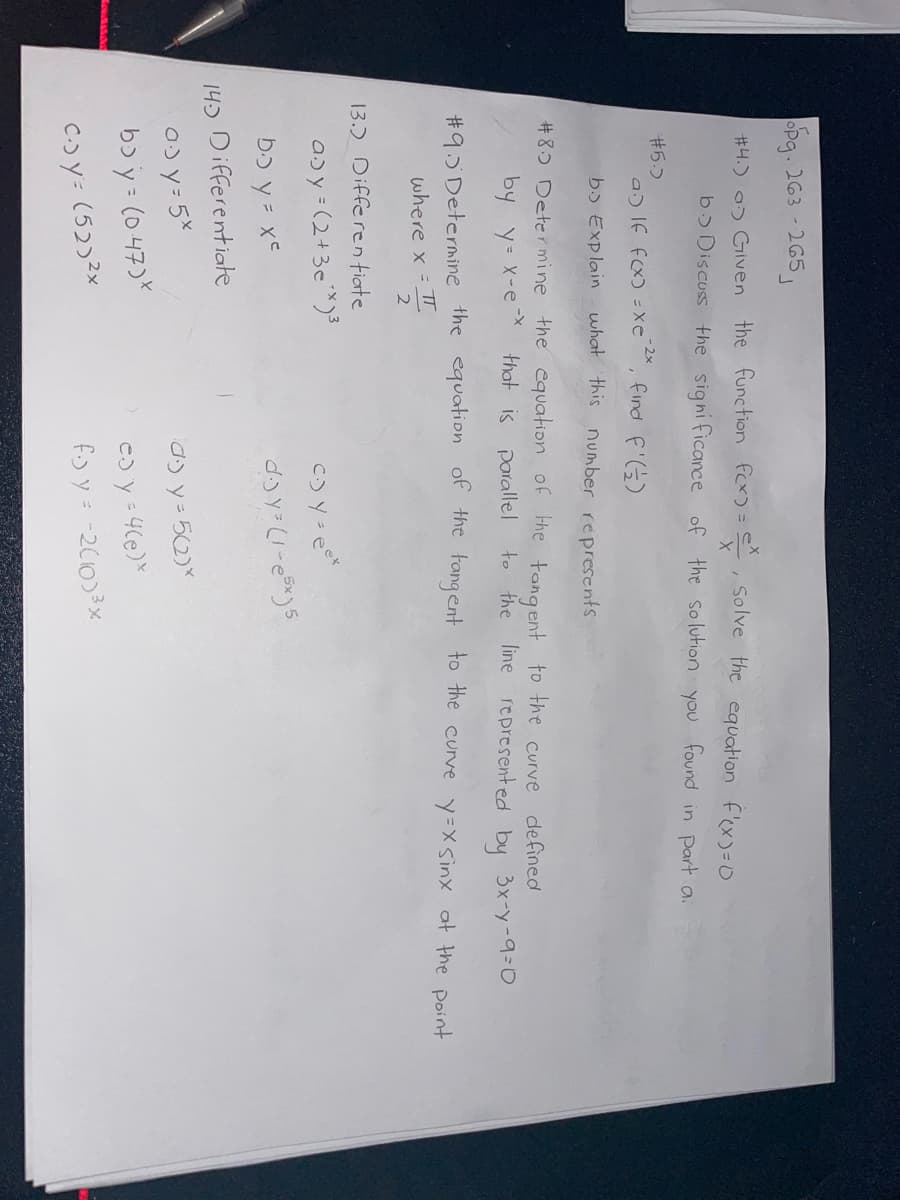 pg. 263 - 265
#4.) a.) Given the function f(x) = e^x/x, solve the equation f'(x)=0
b.) Discuss the significance of the solution you found in part a.
#5.)
a.) If f(x) = xe^-2x, find f'(1/2)
b.) Explain what this number represents
#8.) Determine the equation of the tangent to the curve defined
by y = x-e^-x that is parallel to the line represented by 3x-y-9=0
#9.) Determine the equation of the tangent to the curve y=x sinx at the point
where x = π/2
13.) Differentiate
a.) y = (2+3e^-x)^3 c.) y = e^e^x
b.) y = x^e d.) y = (1-e^5x)^5
14.) Differentiate
a.) y = 5^x d.) y = 5(2)^x
b.) y = (0 47)^x e.) y = 4(e)^x
c.) y = (52)^2x f.) y = -2(10)^3x